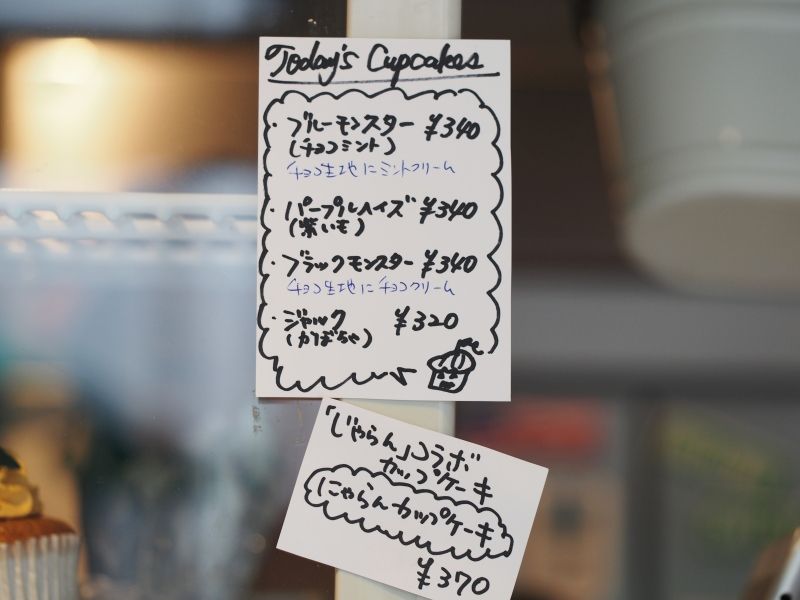 Today's Cupcakes
・ブルーモンスター ¥340
(チョコミント)
チョコ生地にミントクリーム
・パープルヘイズ ¥340
(紫いも)
・ブラックモンスター ¥340
チョコ生地にチョコクリーム
・ジャック ¥320
(かぼちゃ)
「じゃらん」コラボ
カップケーキ
にゃらんカップケーキ
¥370